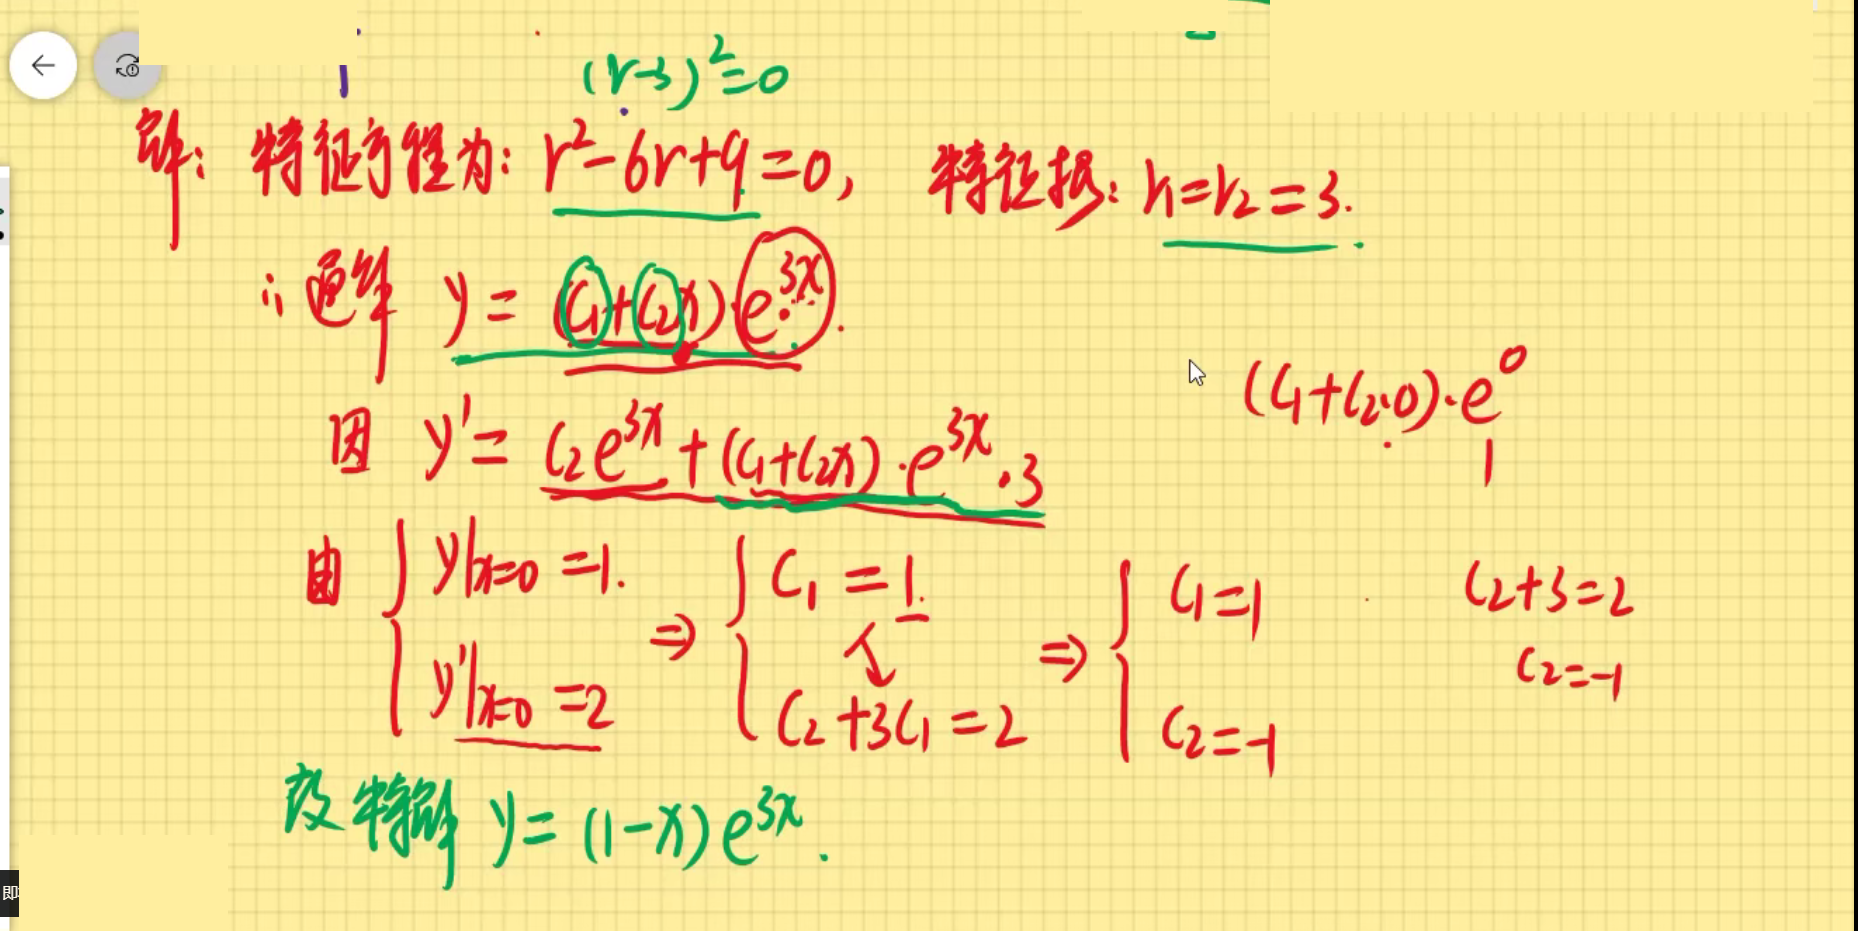 (r-3)²=0
解：特征方程为：r²-6r+9=0， 特征根：r₁=r₂=3.
∴通解 y=(C₁+C₂x)·e³ˣ.
(C₁+C₂·0)·e⁰
1
因 y'=C₂e³ˣ+(C₁+C₂x)·e³ˣ·3
由 { y|x=0 =1. ⇒ { C₁=1. ⇒ { C₁=1
C₂+3=2
C₂=-1
y'|x=0 =2 C₂+3C₁=2 C₂=-1
故特解 y=(1-x)e³ˣ.